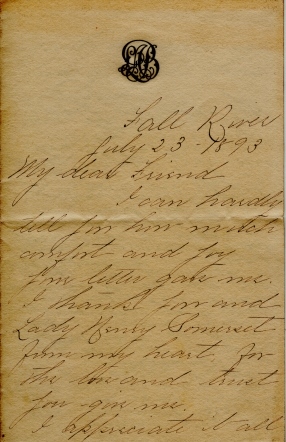 Fall River
July 23 - 1893
My dear Friend
I can hardly
tell you how much
comfort and joy
your letter gave me.
I thank you and
Lady Henry Somerset
from my heart, for
the love and trust
you give me.
I appreciate it all